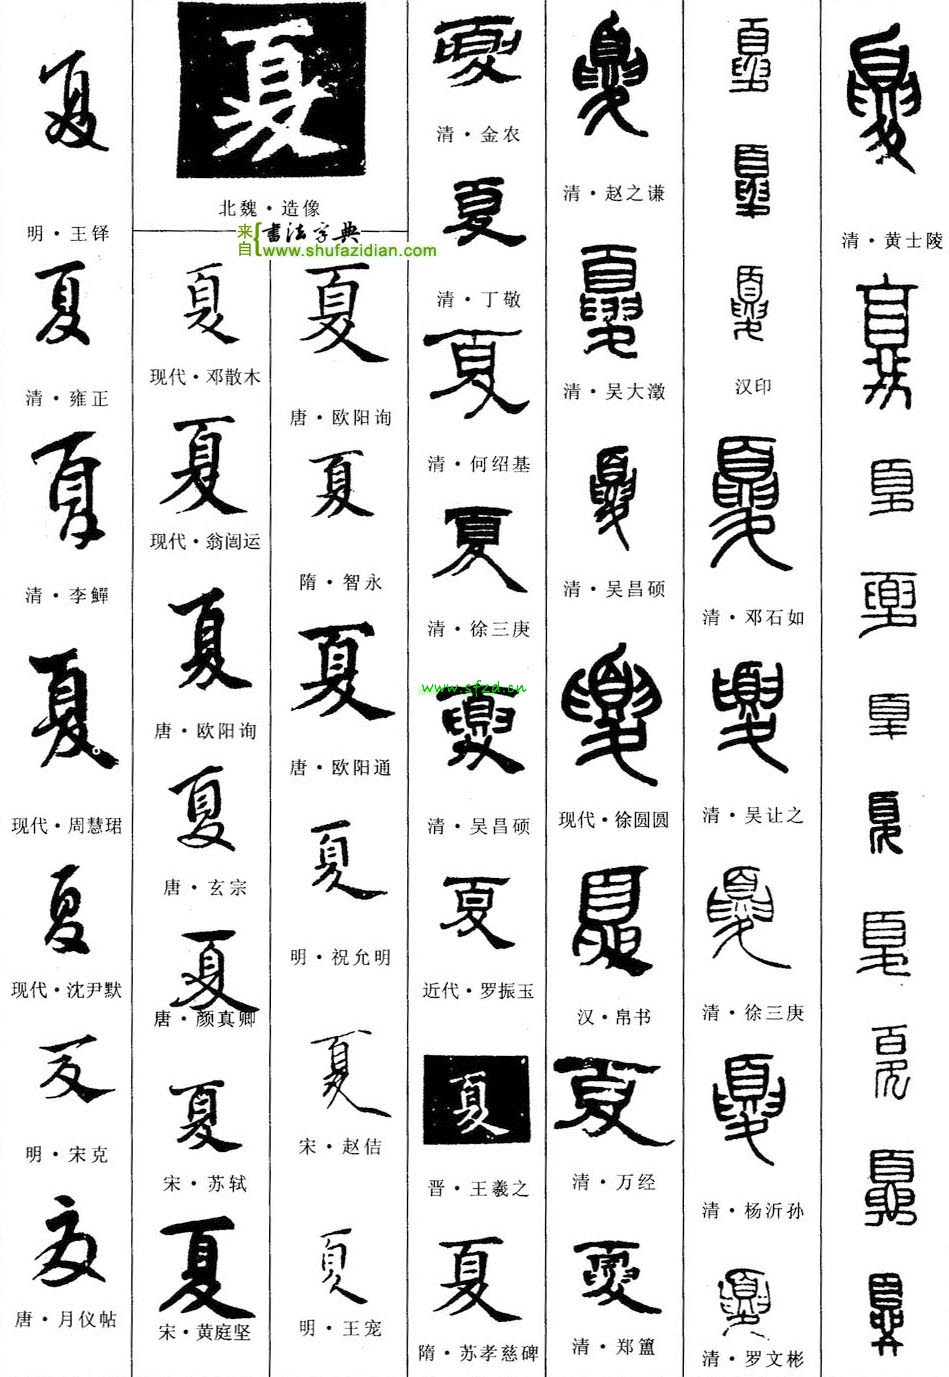 夏
明·王铎
夏
清·雍正
夏
清·李鱓
夏
现代·周慧珺
夏
现代·沈尹默
夏
明·宋克
夏
唐·月仪帖
夏
北魏·造像
来自{書法字典
www.shufazidian.com
夏
现代·邓散木
夏
现代·翁闿运
夏
唐·欧阳询
夏
唐·玄宗
夏
唐·颜真卿
夏
宋·苏轼
夏
宋·黄庭坚
夏
唐·欧阳询
夏
隋·智永
夏
唐·欧阳通
夏
明·祝允明
夏
宋·赵佶
夏
明·王宠
夏
清·金农
夏
清·丁敬
夏
清·何绍基
夏
清·徐三庚
www.sfzd.cn
夏
清·吴昌硕
夏
近代·罗振玉
夏
晋·王羲之
夏
隋·苏孝慈碑
夏
清·赵之谦
夏
清·吴大澂
夏
清·吴昌硕
夏
现代·徐圆圆
夏
汉·帛书
夏
清·万经
夏
清·郑簠
夏
夏
夏
汉印
夏
清·邓石如
夏
清·吴让之
夏
清·徐三庚
夏
清·杨沂孙
夏
清·罗文彬
夏
清·黄士陵
夏
夏
夏
夏
夏
夏
夏
夏
夏